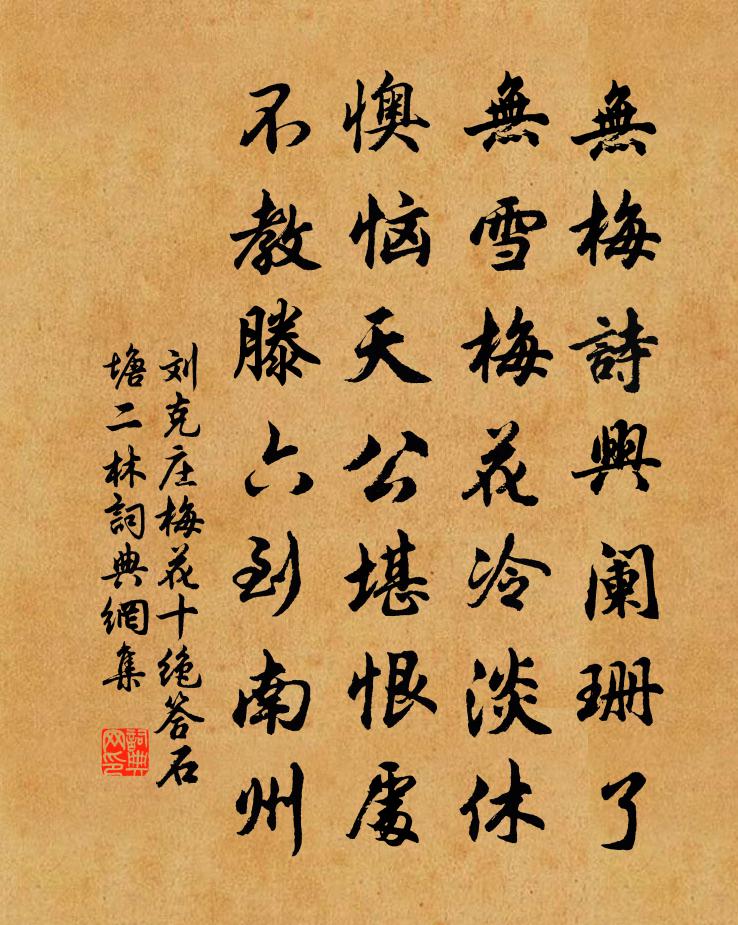 無梅詩興阑珊了
無雪梅花冷淡休
懊恼天公堪恨處
不教滕六到南州
刘克庄梅花十绝答石
塘二林詞典網集
詞典
网印